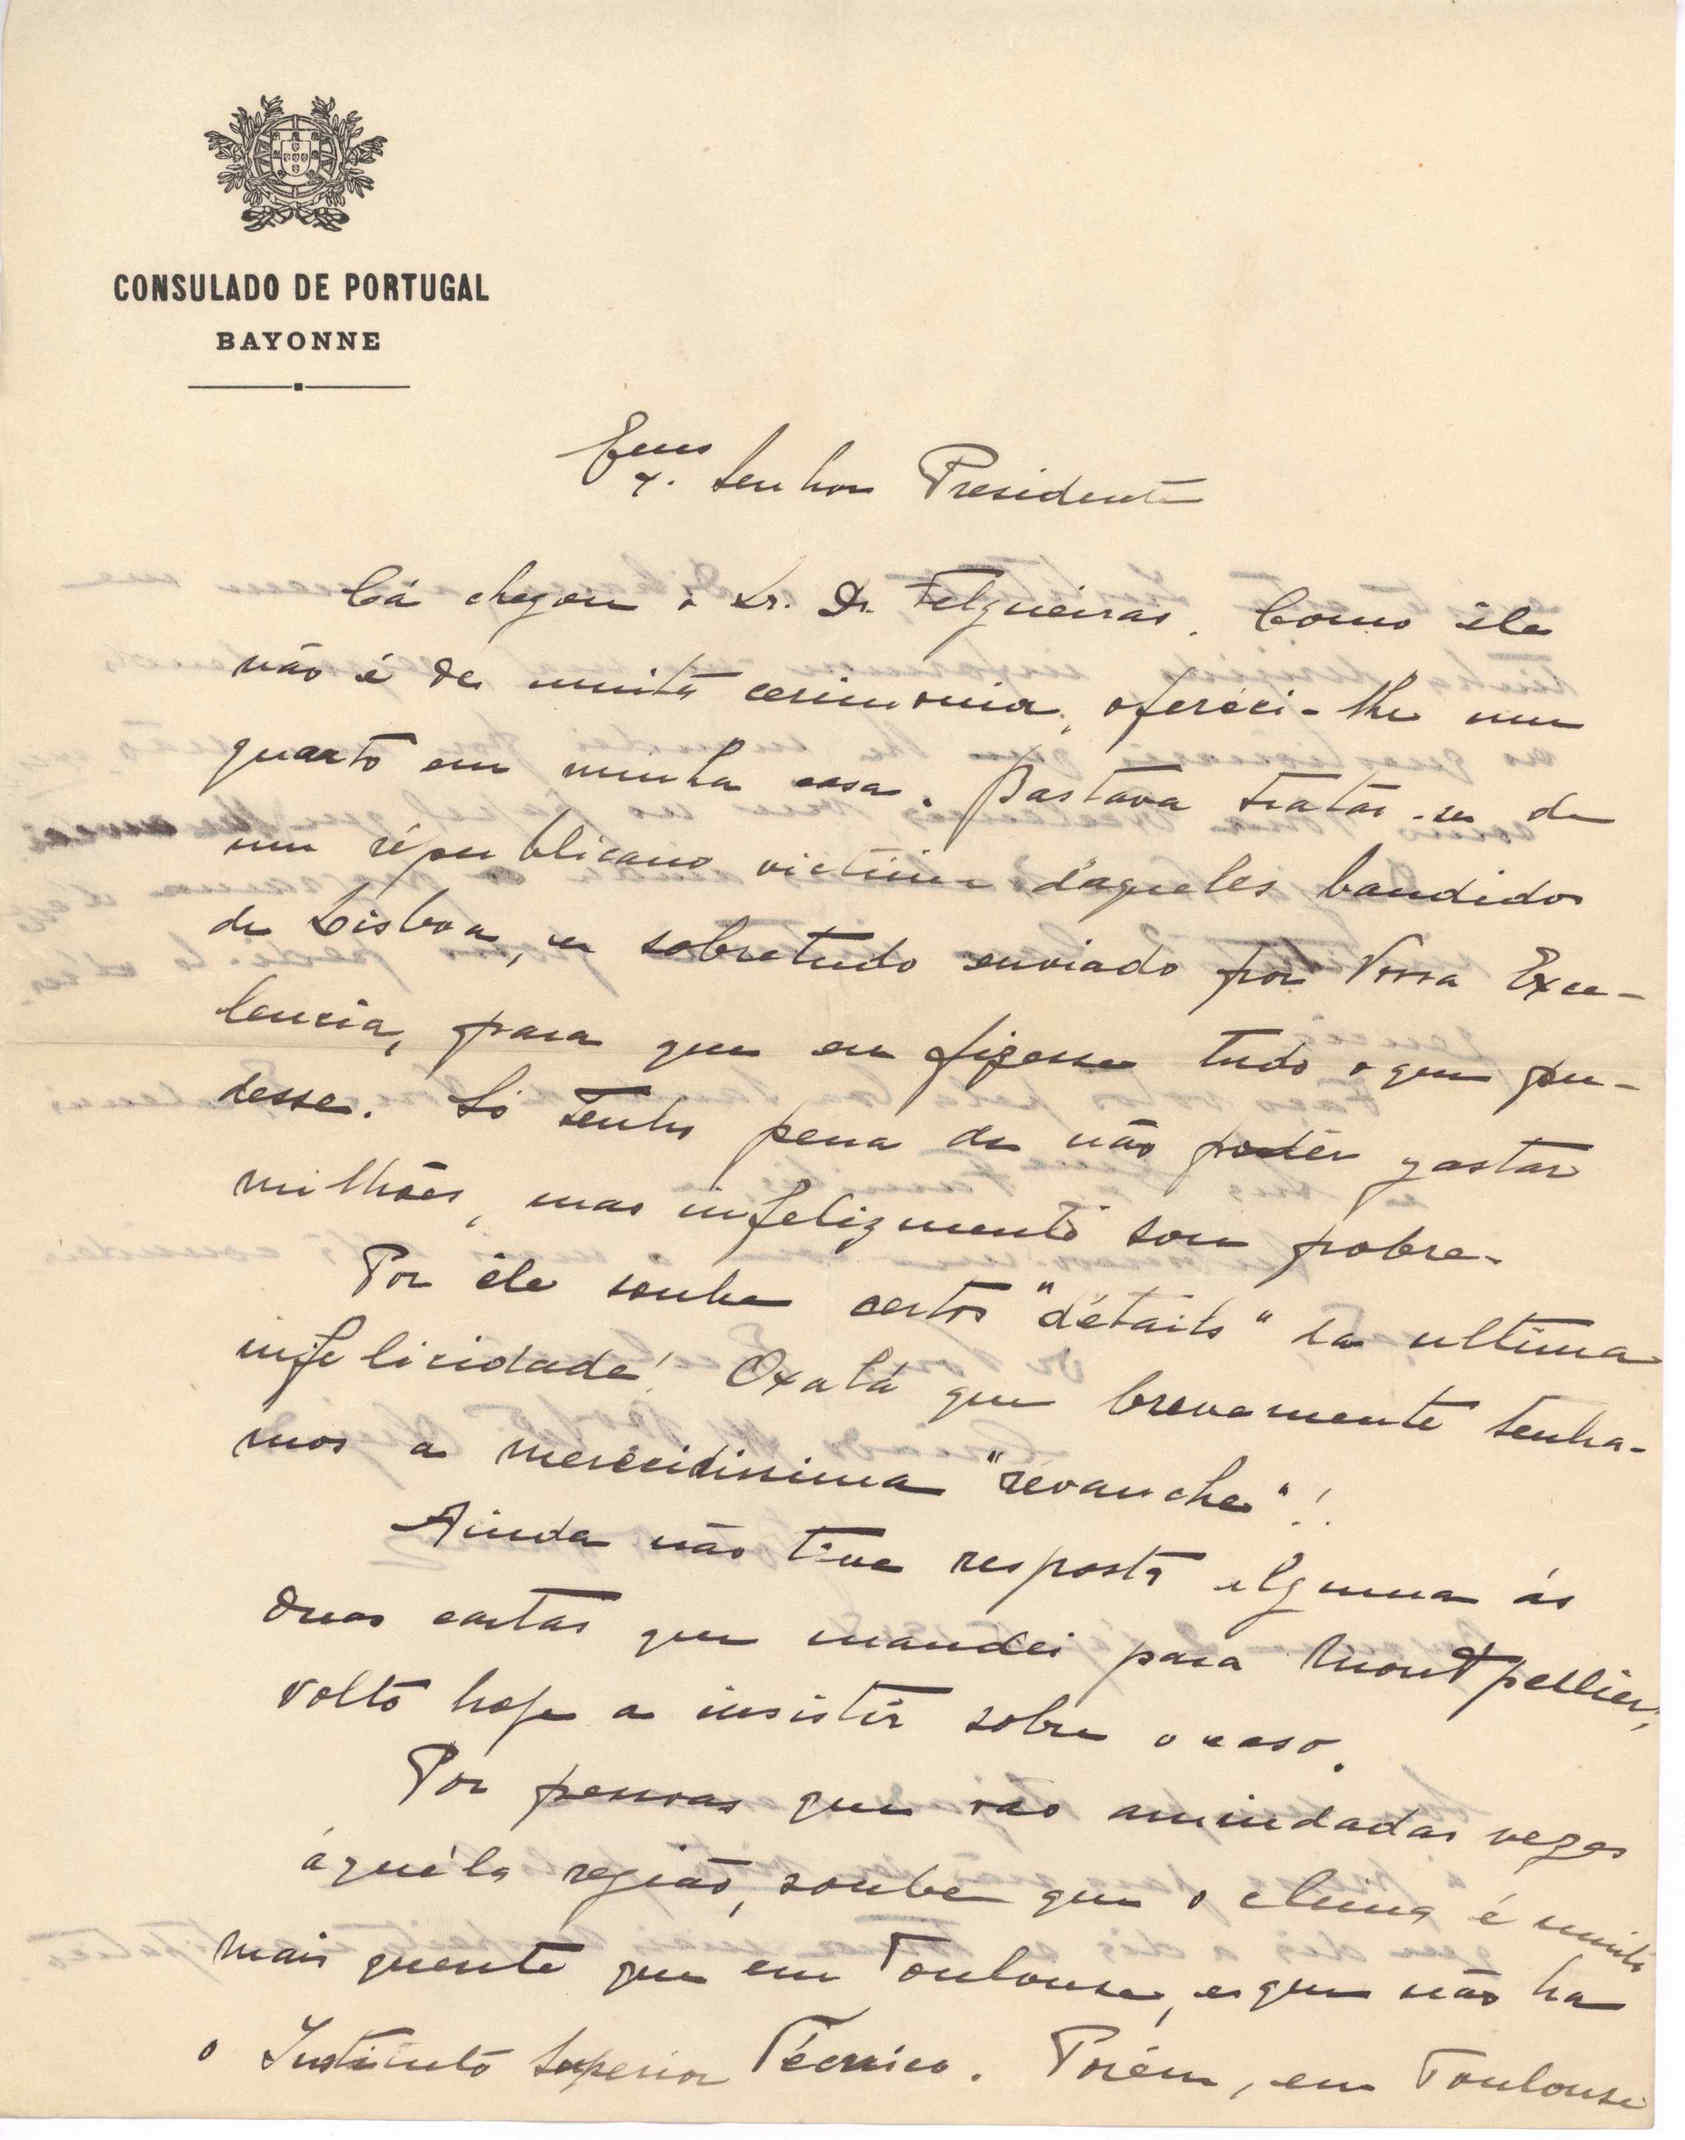 CONSULADO DE PORTUGAL
BAYONNE
Exmo. Senhor Presidente
Cá chegou o Sr. Dr. Felgueiras. Como êle
não é de muita cerimonia, oferéci-lhe um
quarto em minha casa. Bastava tratar-se de
um républicano victima d'aqueles bandidos
de Lisboa, e sobretudo enviado por Vossa Exce-
lencia, para que eu fizesse tudo o que pu-
desse. Só tenho pena de não podêr gastar
milhões, mas infelizmente sou pobre.
Por êle soube certos "détails" da ultima
infelicidade! Oxalá que brevemente tenha-
mos a merecidissima "révanche"!
Ainda não tive resposta alguma ás
duas cartas que mandei para Montpellier,
volto hoje a insistir sobre o caso.
Por pessoas que vão amiudadas vezes
áquéla região, soube que o clima é muito
mais quente que em Toulouse, e que não ha
o Instituto Superior Técnico. Porém, em Toulouse